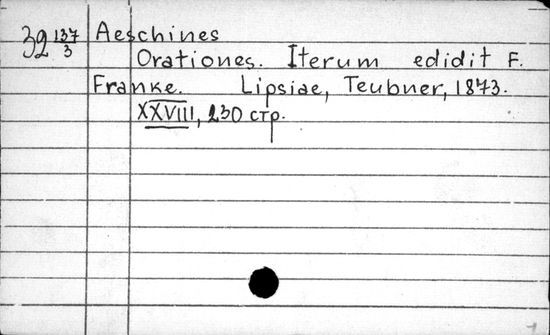 32 137/3 Aeschines
Orationes. Iterum edidit F.
Franke. Lipsiae, Teubner, 1873.
XXVIII, 230 стр.